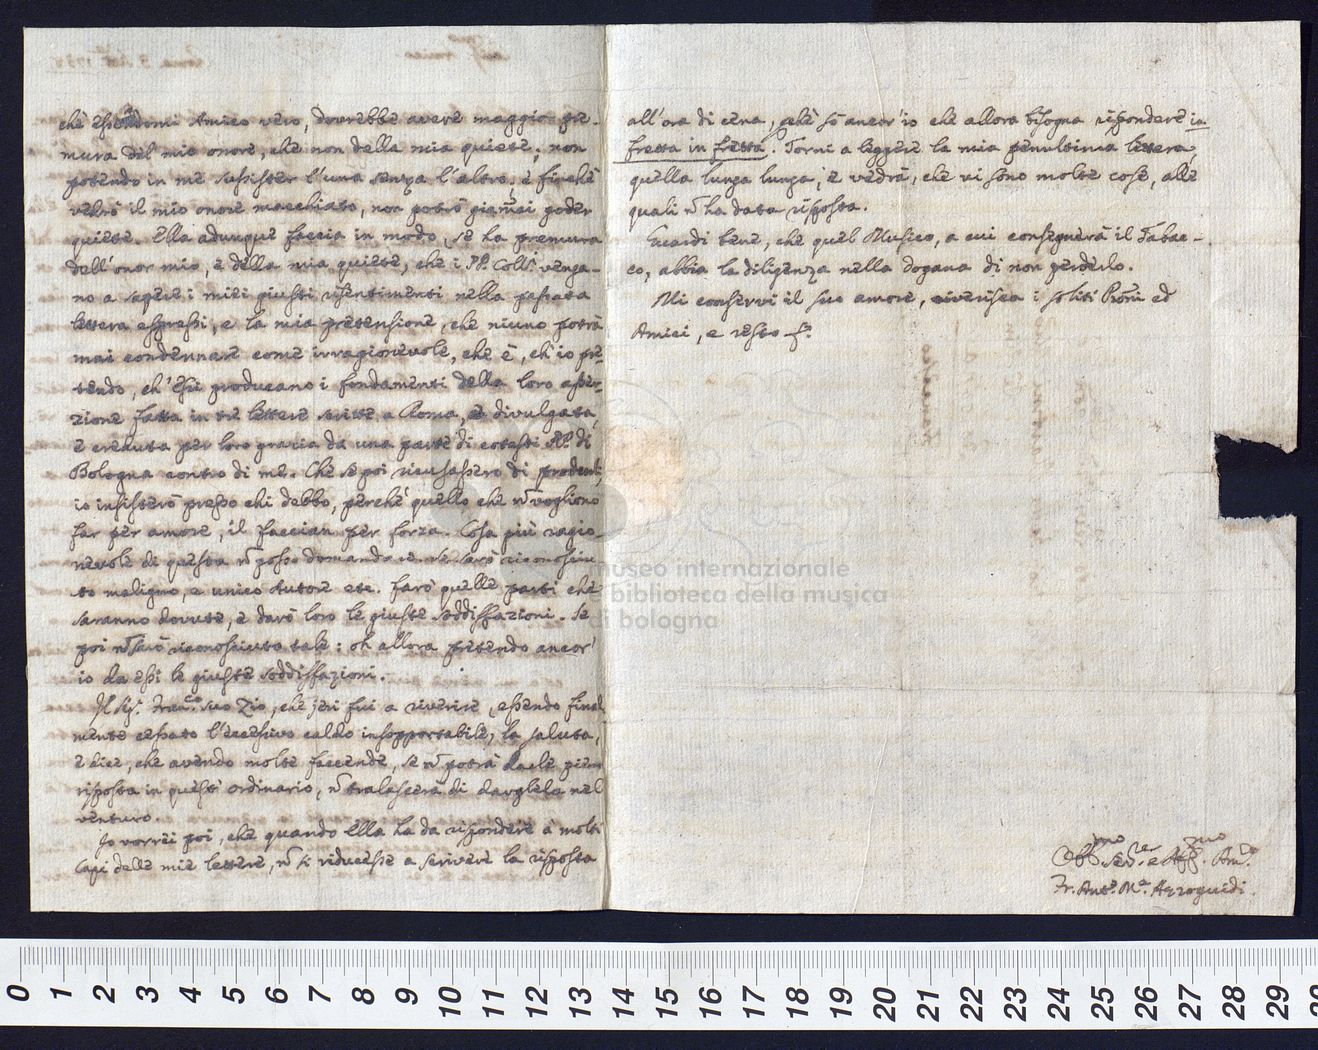 che essendomi Amico vero, dovrebbe avere maggior pre-
mura del mio onore, che non della mia quiete; non
potendo in me sussister l'una senza l'altro; e finchè
vedrò il mio onore macchiato, non potrò giammai goder
quiete. Ella adunque faccia in modo, se ha premura
dell'onor mio, e della mia quiete, che i PP. Coll.i venga-
no a sapere i miei giusti risentimenti nella passata
lettera espressi, e la mia pretensione, che niuno potrà
mai condennare come irragionevole, che è, ch'io pre-
tendo, ch'essi producano i fondamenti della loro asser-
zione fatta in tre lettere scritte a Roma, e divulgata,
e creduta per loro grazia da una parte di cotesti PP. di
Bologna contro di me. Che se poi ricusassero di produrli,
io insisterò presso chi debbo, perchè quello che ñ vogliono
far per amore, il faccian per forza. Cosa più ragio-
nevole di questa ñ posso domandare. Se sarò riconosciu-
to maligno, e unico Autore etc. farò quelle parti che
saranno dovute, e darò loro le giuste soddisfazioni. Se
poi ñ sarò riconosciuto tale: oh allora pretendo ancor'
io da essi le giuste soddisfazioni.
Il Sig.r Fran.co suo Zio, che jeri fui a riverire, essendo final
mente cessato l'eccessivo caldo insopportabile, la saluta,
e dice, che avendo molte faccende, se ñ potrà darle piena
risposta in quest' ordinario, ñ tralascerà di dargliela nel
venturo.
Io vorrei poi, che quando Ella ha da rispondere a molti
Capi delle mie lettere, ñ si riducesse a scrivere la risposta
all'ora di cena, perchè sò ancor'io che allora bisogna rispondere in
fretta in fretta. Torni a leggere la mia penultima lettera,
quella lunga lunga, e vedrà, che vi sono molte cose, alle
quali ñ ha data risposta.
Guardi bene, che quel Musico, a cui consegnerà il Tabac-
co, abbia la diligenza nella dogana di non perderlo.
Mi conservi il suo amore, riverisca i soliti Proñi ed
Amici, e resto
Obb.mo Ser.er e Aff.mo Am.o
Fr. Ant.o M.a Azzoguidi.
museo internazionale
e biblioteca della musica
di bologna
0 1 2 3 4 5 6 7 8 9 10 11 12 13 14 15 16 17 18 19 20 21 22 23 24 25 26 27 28 29